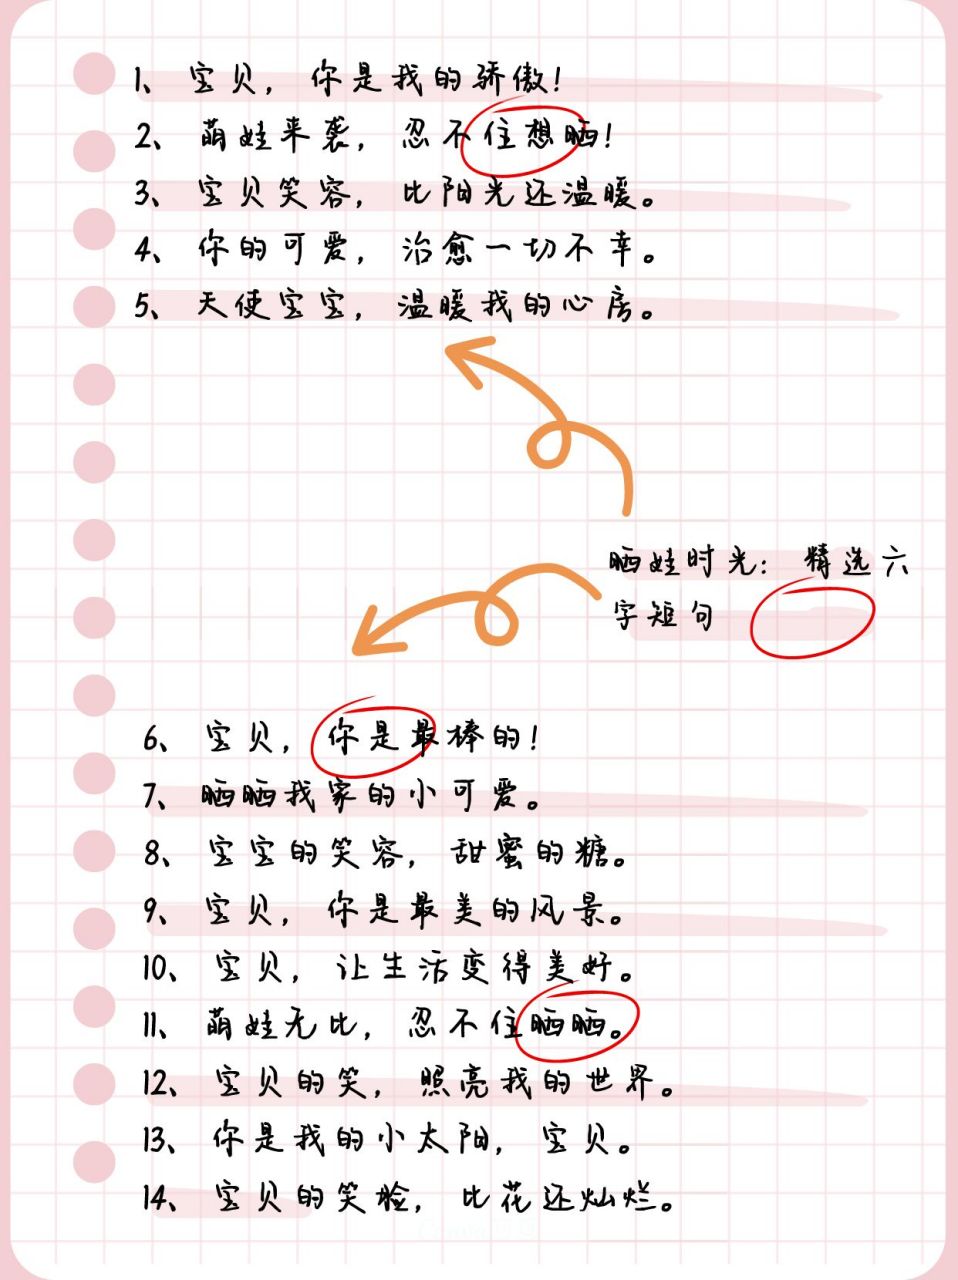 1、宝贝，你是我的骄傲！
2、萌娃来袭，忍不住想晒！
3、宝贝笑容，比阳光还温暖。
4、你的可爱，治愈一切不幸。
5、天使宝宝，温暖我的心房。
晒娃时光：精选六
字短句
6、宝贝，你是最棒的！
7、晒晒我家的小可爱。
8、宝宝的笑容，甜蜜的糖。
9、宝贝，你是最美的风景。
10、宝贝，让生活变得美好。
11、萌娃无比，忍不住晒晒。
12、宝贝的笑，照亮我的世界。
13、你是我的小太阳，宝贝。
14、宝贝的笑脸，比花还灿烂。